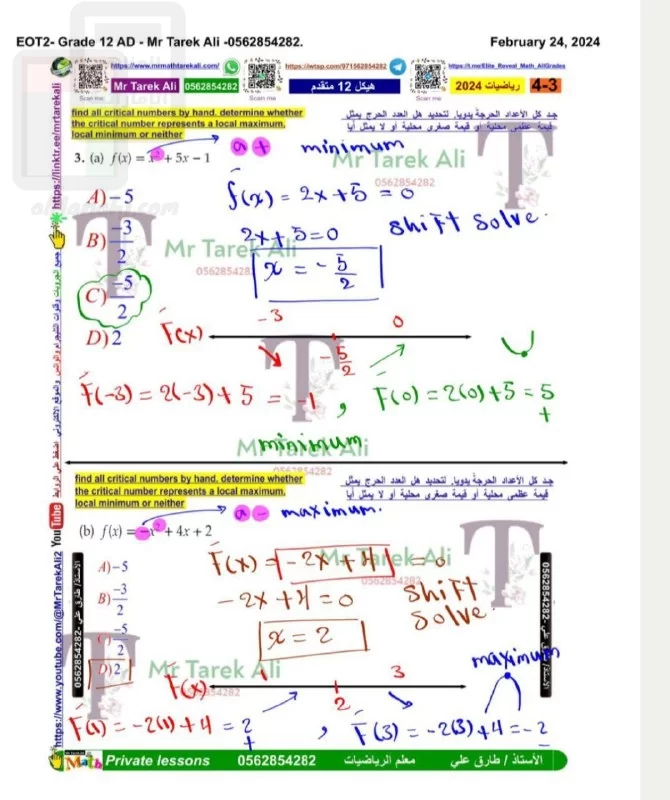 EOT2- Grade 12 AD - Mr Tarek Ali -0562854282. February 24, 2024
https://www.mrmathtarekali.com/ https://iwtsp.com/971562854282 https://t.me/Elite_Reveal_Math_AllGrades
Mr Tarek Ali 0562854282 هيكل 12 متقدم رياضيات 2024 4-3
Scan me Scan me Scan me
find all critical numbers by hand. determine whether
the critical number represents a local maximum,
local minimum or neither
جد كل الأعداد الحرجة يدويا. لتحديد هل العدد الحرج يمثل
قيمة عظمى محلية أو قيمة صغرى محلية أو لا يمثل أيا
3. (a) f(x) = x² + 5x − 1
a + minimum
Mr Tarek Ali
0562854282
A) -5
f́(x) = 2x + 5 = 0
B) -3/2
2x + 5 = 0 shift solve.
Mr Tarek Ali
0562854282
x = - 5/2
C) -5/2
D) 2
f́(x) -3 0
-5/2
f́(-3) = 2(-3) + 5 = -1 , f́(0) = 2(0) + 5 = 5
+
minimum
Mr Tarek Ali
0562854282
find all critical numbers by hand. determine whether
the critical number represents a local maximum,
local minimum or neither
جد كل الأعداد الحرجة يدويا. لتحديد هل العدد الحرج يمثل
قيمة عظمى محلية أو قيمة صغرى محلية أو لا يمثل أيا
a - maximum.
(b) f(x) = −x² + 4x + 2
A) -5
f́(x) = -2x + 4 = 0
Mr Tarek Ali
0562854282
B) -3/2
-2x + 4 = 0 shift solve.
C) -5/2
x = 2
D) 2
Mr Tarek Ali
0562854282
maximum
f́(x) 1 3
2
f́(1) = -2(1) + 4 = 2 , f́(3) = -2(3) + 4 = -2
+ -
Math Private lessons 0562854282 معلم الرياضيات الأستاذ / طارق علي
https://linktr.ee/mrtarekali
YouTube
https://www.youtube.com/@MrTarekAli2
الأستاذ/ طارق علي -0562854282
0562854282- طارق علي